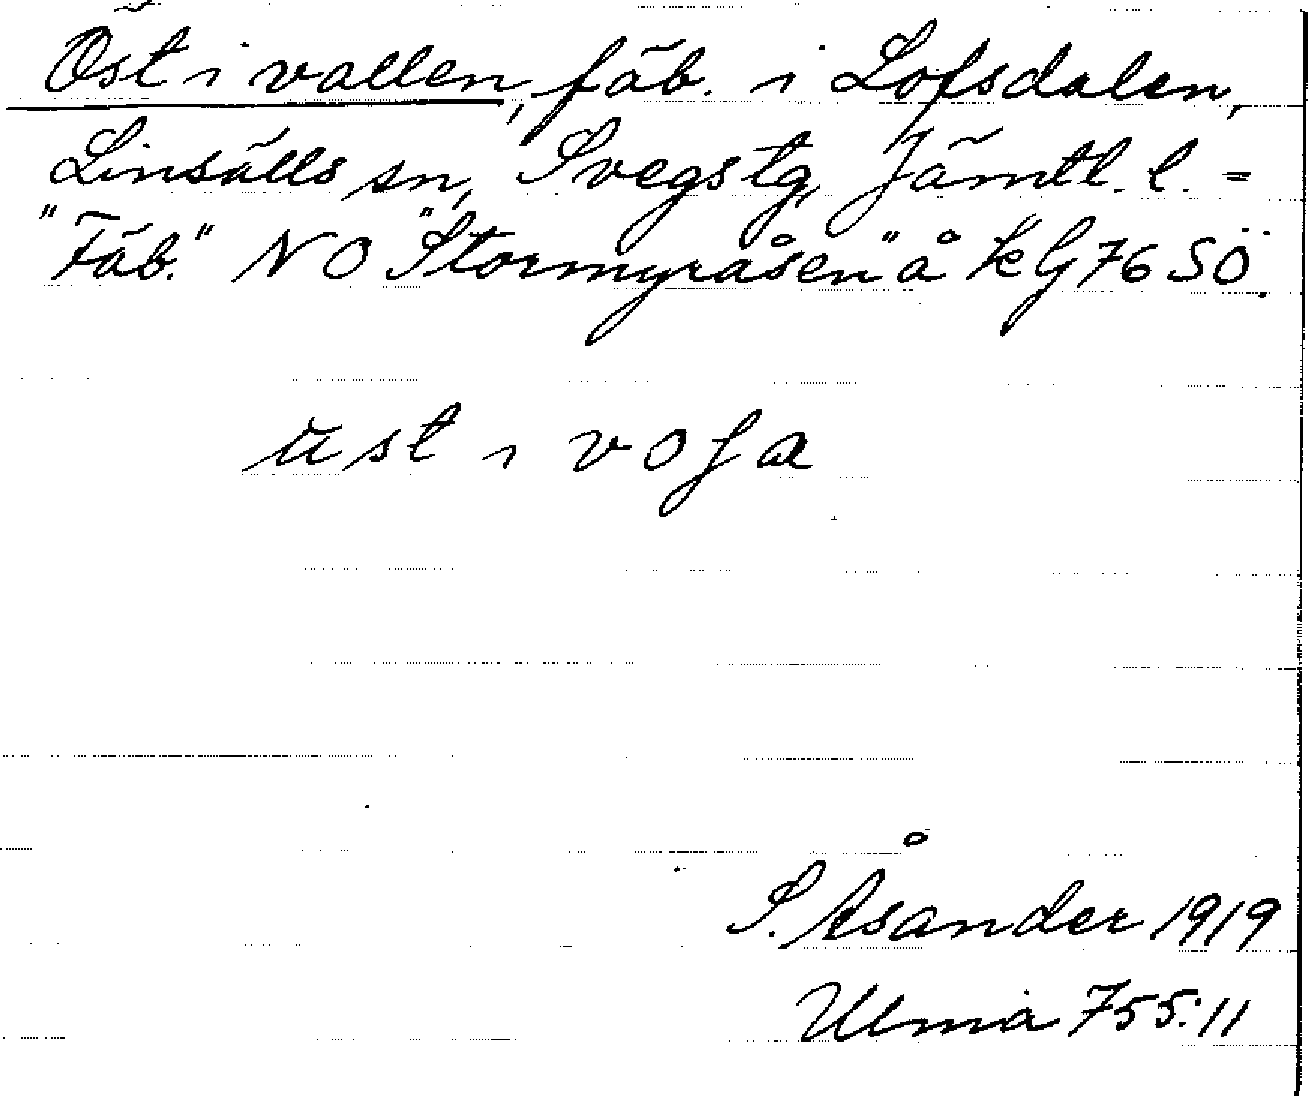 Öst i vallen, fäb. i Lofsdalen,
Linsälls sn, Svegs tg, Jämtl. l. =
"Fäb." NO "Stormyråsen" å kG 76 SÖ.
ust i vofa
S. Åsander 1919
Ulma 755:11